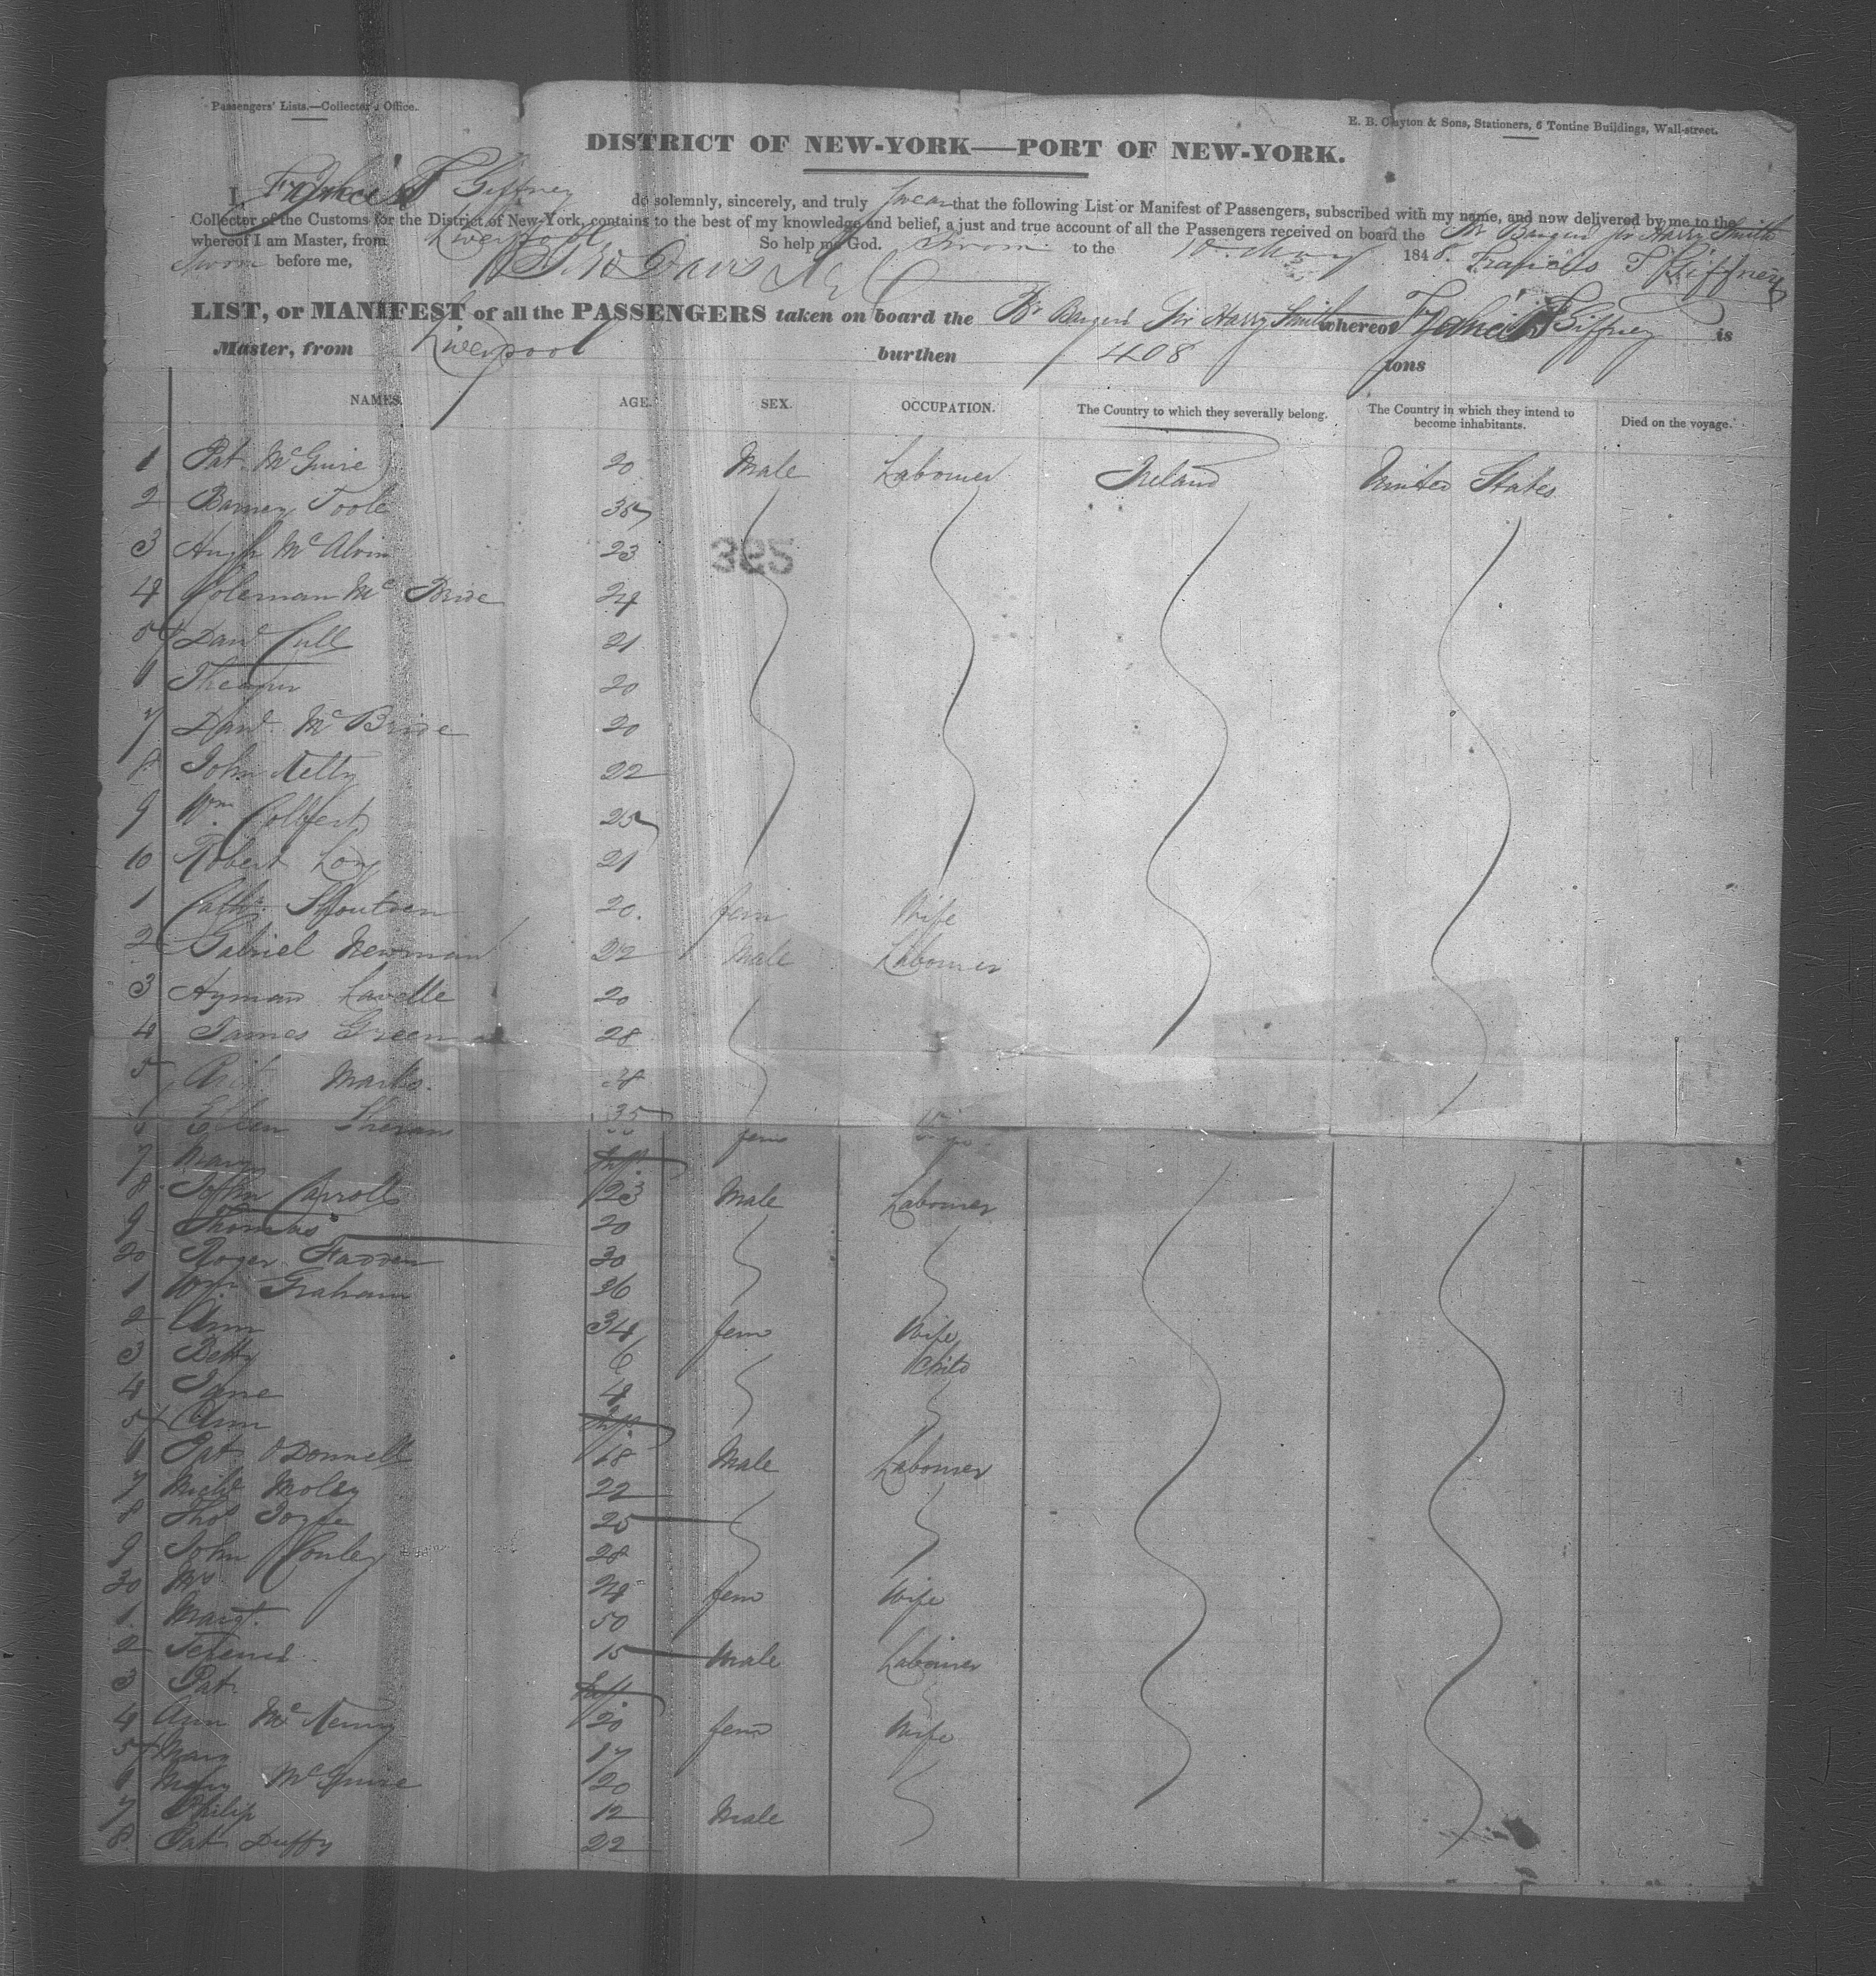 Passengers' Lists.—Collector's Office.
E. B. Clayton & Sons, Stationers, 6 Tontine Buildings, Wall-street.
DISTRICT OF NEW-YORK—PORT OF NEW-YORK.
I, Francis T Giffney do solemnly, sincerely, and truly swear that the following List or Manifest of Passengers, subscribed with my name, and now delivered by me to the
Collector of the Customs for the District of New-York, contains to the best of my knowledge and belief, a just and true account of all the Passengers received on board the Br Barque Sir Harry Smith
whereof I am Master, from Liverpool So help me God.
Sworn to the 10 May 1848. Francis T Giffney
Sworn before me, Davis
LIST, or MANIFEST of all the PASSENGERS taken on board the Br Barque Sir Harry Smith whereof Francis T Giffney is
Master, from Liverpool burthen 408 tons
NAMES. AGE. SEX. OCCUPATION. The Country to which they severally belong. The Country in which they intend to become inhabitants. Died on the voyage.
1 Pat McGuire 20 Male Labourer Ireland United States
2 Barney Toole 35
3 Hugh McAlvin 23
365
4 Coleman McBride 24
5 Danl Cull 21
20
7 Danl McBride 20
8 John 22
9 Wm 25
10 Robert 21
1 Cath 20 fem Wife
2 Gabriel Newman 22 Male Labourer
3 Hyman Lavelle 20
4 James Green 28
5 Marks
Ellen 35 fem
7 Mary Inft.
8 John Carroll 23 Male Labourer
9 Thomas 20
20 Roger Fadden 30
1 Wm Graham 36
2 Ann 34 fem Wife
3 Betty 6 Child
4 Jane 4
5 Ann Inft.
6 Pat ODonnell 18 Male Labourer
7 Michl Moley 22
8 Thos Joyce 25
9 John Conley 28
30 Mrs 24 fem Wife
1 Margt. 50
2 15 Male Labourer
3 Pat Inft.
4 Ann Mc 20 fem Wife
5 Mary 17
6 Mary McGuire 20
7 Philip 12 Male
8 Pat Duffy 22